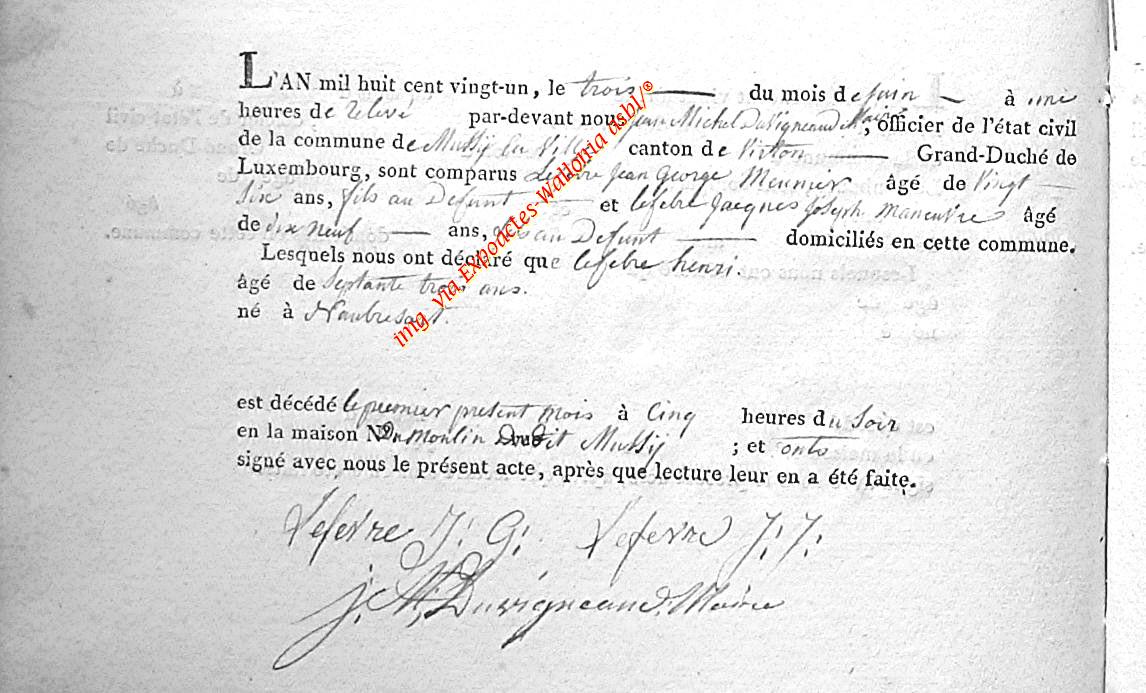 L'AN mil huit cent vingt-un, le trois du mois de juin à une
heures de relevé par-devant nous jean Michel Duvigneaud Maire, officier de l'état civil
de la commune de Mussy la Ville canton de Virton Grand-Duché de
Luxembourg, sont comparus lefevre jean George Meunier âgé de Vingt
Six ans, fils au Defunt et lefebre jacques joseph maneuvre âgé
de dix neuf ans, fils au Defunt domiciliés en cette commune.
Lesquels nous ont déclaré que lefebre henri.
âgé de Septante trois ans.
né à
est décédé le premier present mois à Cinq heures du Soir
en la maison Du Moulin Dudit Mussy ; et onts
signé avec nous le présent acte, après que lecture leur en a été faite.
Lefevre J: G: Lefevre J: J:
j. M. Duvigneaud. Maire
img via Expoactes-Wallonia asbl/©